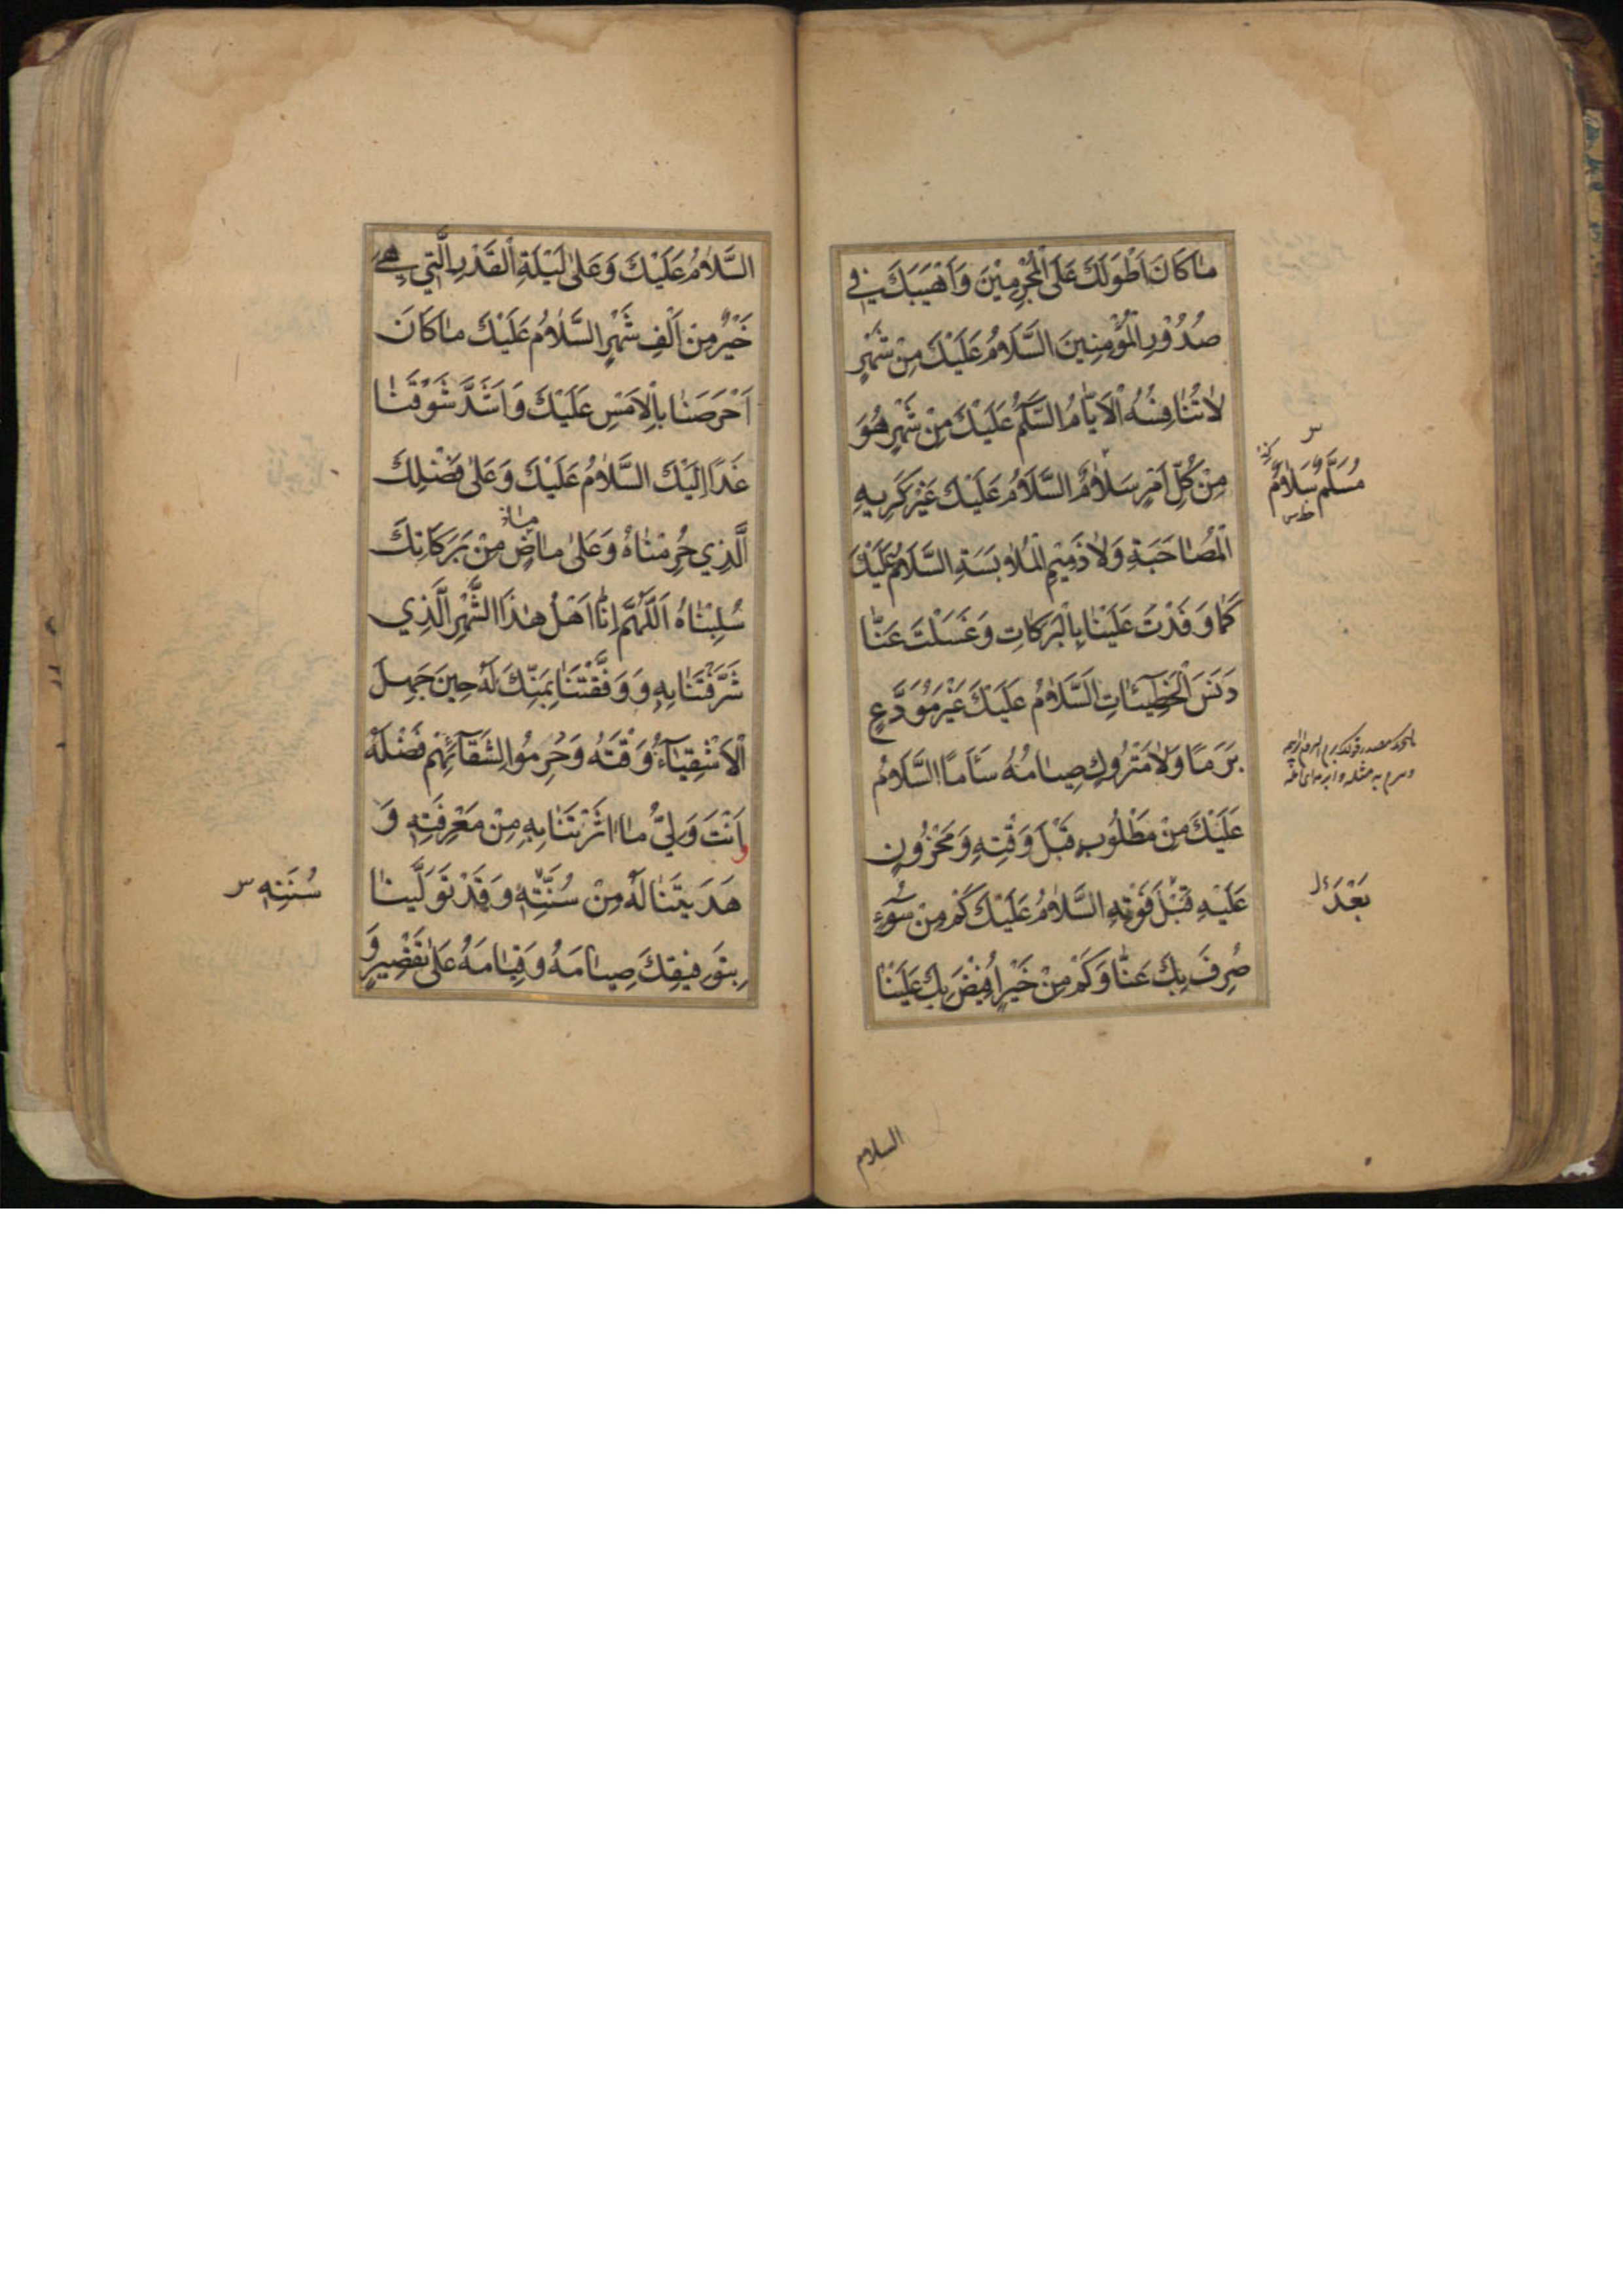 مٰا كٰانَ اَطْوَلَكَ عَلَى الْمُجْرِمِيْنَ وَاَهْيَبَكَ فِي
صُدُوْرِ الْمُؤْمِنِينَ السَّلَامُ عَلَيْكَ مِنْ شَهْرٍ
لٰا تُنٰافِسُهُ الْاَيّٰامُ السَّلٰمُ عَلَيْكَ مِنْ شَهْرٍ هُوَ
مِنْ كُلِّ اَمْرٍ سَلٰامٌ السَّلَامُ عَلَيْكَ غَيْرَ كَرِيهِ
الْمُصٰاحَبَةِ وَلٰا ذَمِيْمِ الْمُلٰابَسَةِ السَّلَامُ عَلَيْكَ
كَمٰا وَفَدْتَ عَلَيْنٰا بِالْبَرَكٰاتِ وَغَسَلْتَ عَنّٰا
دَنَسَ الْخَطِيئٰاتِ السَّلٰامُ عَلَيْكَ غَيْرَ مُوَدَّعٍ
بَرَمًا وَلٰا مَتْرُوكٍ صِيٰامُهُ سَأَمًا السَّلٰامُ
عَلَيْكَ مِنْ مَطْلُوبٍ قَبْلَ وَقْتِهِ وَمَحْزُونٍ
عَلَيْهِ قَبْلَ فَوْتِهِ السَّلٰامُ عَلَيْكَ كَمْ مِنْ سُوۤءٍ
صُرِفَ بِكَ عَنّٰا وَكَمْ مِنْ خَيْرٍ اُفِيْضَ بِكَ عَلَيْنٰا
مُسَلَّمٌ سَلٰامٌ
بَعْدَ
السلام
السَّلٰامُ عَلَيْكَ وَعَلىٰ لَيْلَةِ الْقَدْرِ الَّتِي هِيَ
خَيْرٌ مِنْ اَلْفِ شَهْرٍ السَّلٰامُ عَلَيْكَ مٰا كَانَ
اَحْرَصَنٰا بِالْاَمْسِ عَلَيْكَ وَاَشَدَّ شَوْقَنٰا
غَدًا اِلَيْكَ السَّلٰامُ عَلَيْكَ وَعَلىٰ فَضْلِكَ
الَّذِي حُرِمْنٰاهُ وَعَلىٰ مٰاضٍ مِنْ بَرَكٰاتِكَ
سُلِبْنٰاهُ اَللّٰهُمَّ اِنّٰا اَهْلُ هٰذَا الشَّهْرِ الَّذِي
شَرَّفْتَنٰا بِهِ وَوَفَّقْتَنٰا بِمَنِّكَ لَهُ حِينَ جَهِلَ
الْاَشْقِيٰآءُ وَقْتَهُ وَحُرِمُوا لِشَقَآئِهِمْ فَضْلَهُ
وَ اَنْتَ وَلِيُّ مٰا اٰثَرْتَنٰا بِهِ مِنْ مَعْرِفَتِهِ وَ
هَدَيْتَنٰا لَهُ مِنْ سُنَّتِهِ وَقَدْ تَوَلَّيْنٰا
بِتَوْفِيقِكَ صِيٰامَهُ وَقِيٰامَهُ عَلىٰ تَقْصِيرٍ وَ
سُنَنِهِ س